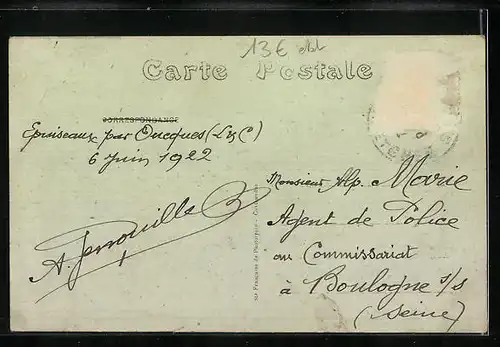 13€
Carte Postale
CORRESPONDANCE
par Oucques (L&C)
6 Juin 1922
Monsieur Alp. Marie
Agent de Police
au Commissariat
à Boulogne s/s
(Seine)
A.